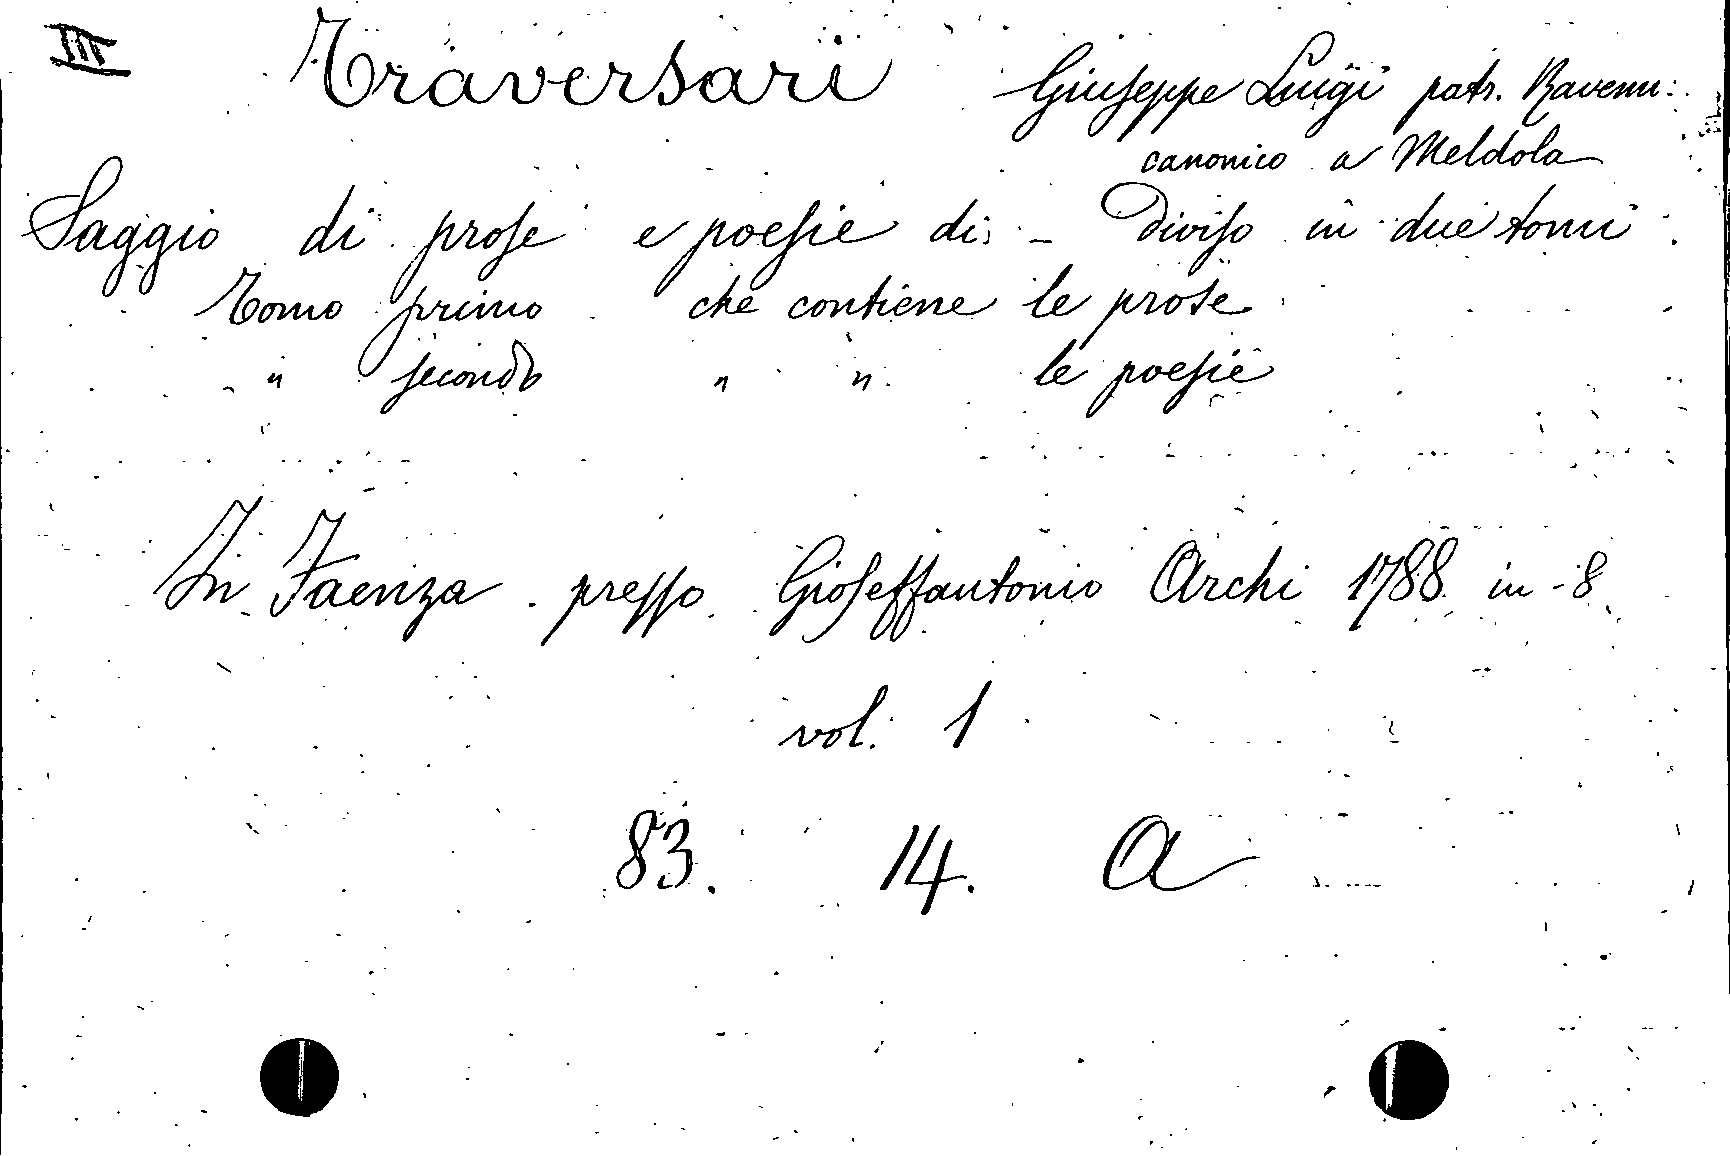 III Traversari Giuseppe Luigi patr. Ravenn:
canonico a Meldola
Saggio di prose e poesie di - Diviso in due tomi
Tomo primo che contiene le prose
" secondo " " le poesie
In Faenza presso Gioseffantonio Archi 1788 in-8
vol. 1
83. 14. A